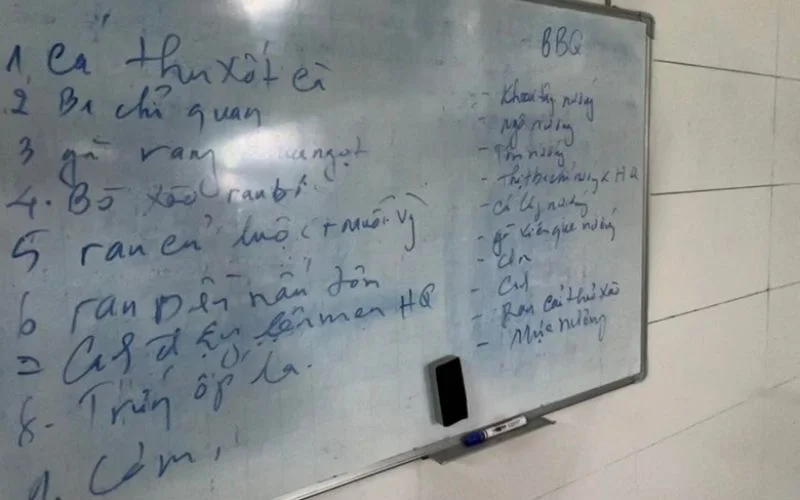 1, Cá thu xốt cà
2 Ba chỉ quay
3 gà rang ngọt
4. Bò xào rau bí
5 rau củ luộc (+ muối vị
6 rau dền nấu tôn
7 HQ
8. Trứng ốp la.
9. Cơm,
BBQ
- Khoai tây nướng
- ngô nướng
- Tôn nướng
- Thịt ba chỉ nướng HQ
- cá nướng
- gà xiên que nướng
- Rau cải thảo xào
- Mực nướng